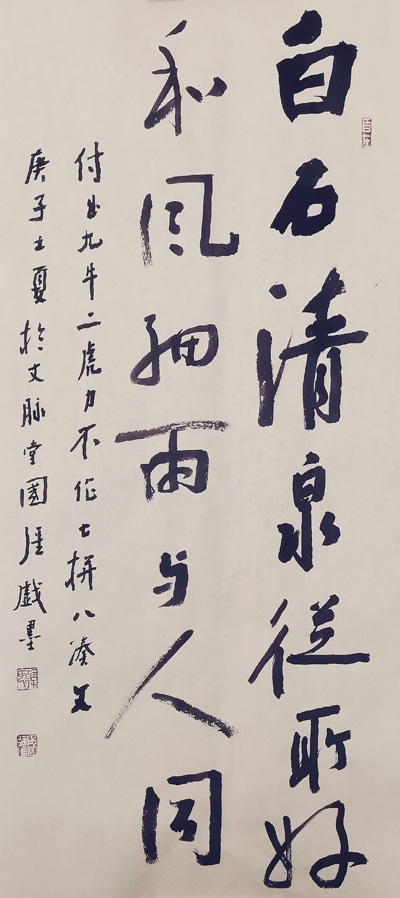 白石清泉從所好
和风細雨与人同
付出九牛二虎力不作七拼八凑文
庚子之夏於文脉堂國㢸戲墨